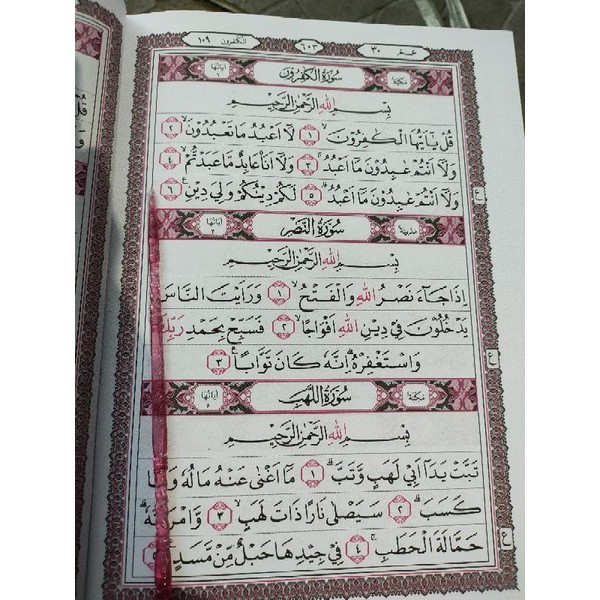 عم ٣٠ ٦٠٣ الكفرون ١٠٩
مكية سُوْرَةُ الْكٰفِرُوْنَ اٰيَاتُهَا ٦
بِسْمِ اللّٰهِ الرَّحْمٰنِ الرَّحِيْمِ
قُلْ يٰٓاَيُّهَا الْكٰفِرُوْنَۙ ١ لَآ اَعْبُدُ مَا تَعْبُدُوْنَۙ ٢
وَلَآ اَنْتُمْ عٰبِدُوْنَ مَآ اَعْبُدُۚ ٣ وَلَآ اَنَا۠ عَابِدٌ مَّا عَبَدْتُّمْۙ ٤
وَلَآ اَنْتُمْ عٰبِدُوْنَ مَآ اَعْبُدُۗ ٥ لَكُمْ دِيْنُكُمْ وَلِيَ دِيْنِ ٦
مدنية سُوْرَةُ النَّصْرِ اٰيَاتُهَا ٣
بِسْمِ اللّٰهِ الرَّحْمٰنِ الرَّحِيْمِ
اِذَا جَاۤءَ نَصْرُ اللّٰهِ وَالْفَتْحُۙ ١ وَرَاَيْتَ النَّاسَ
يَدْخُلُوْنَ فِيْ دِيْنِ اللّٰهِ اَفْوَاجًاۙ ٢ فَسَبِّحْ بِحَمْدِ رَبِّكَ
وَاسْتَغْفِرْهُۗ اِنَّهٗ كَانَ تَوَّابًا ٣
مكية سُوْرَةُ اللَّهَبِ اٰيَاتُهَا ٥
بِسْمِ اللّٰهِ الرَّحْمٰنِ الرَّحِيْمِ
تَبَّتْ يَدَآ اَبِيْ لَهَبٍ وَّتَبَّۗ ١ مَآ اَغْنٰى عَنْهُ مَالُهٗ وَمَا
كَسَبَۗ ٢ سَيَصْلٰى نَارًا ذَاتَ لَهَبٍۙ ٣ وَّامْرَاَتُهٗۗ
حَمَّالَةَ الْحَطَبِۚ ٤ فِيْ جِيْدِهَا حَبْلٌ مِّنْ مَّسَدٍ